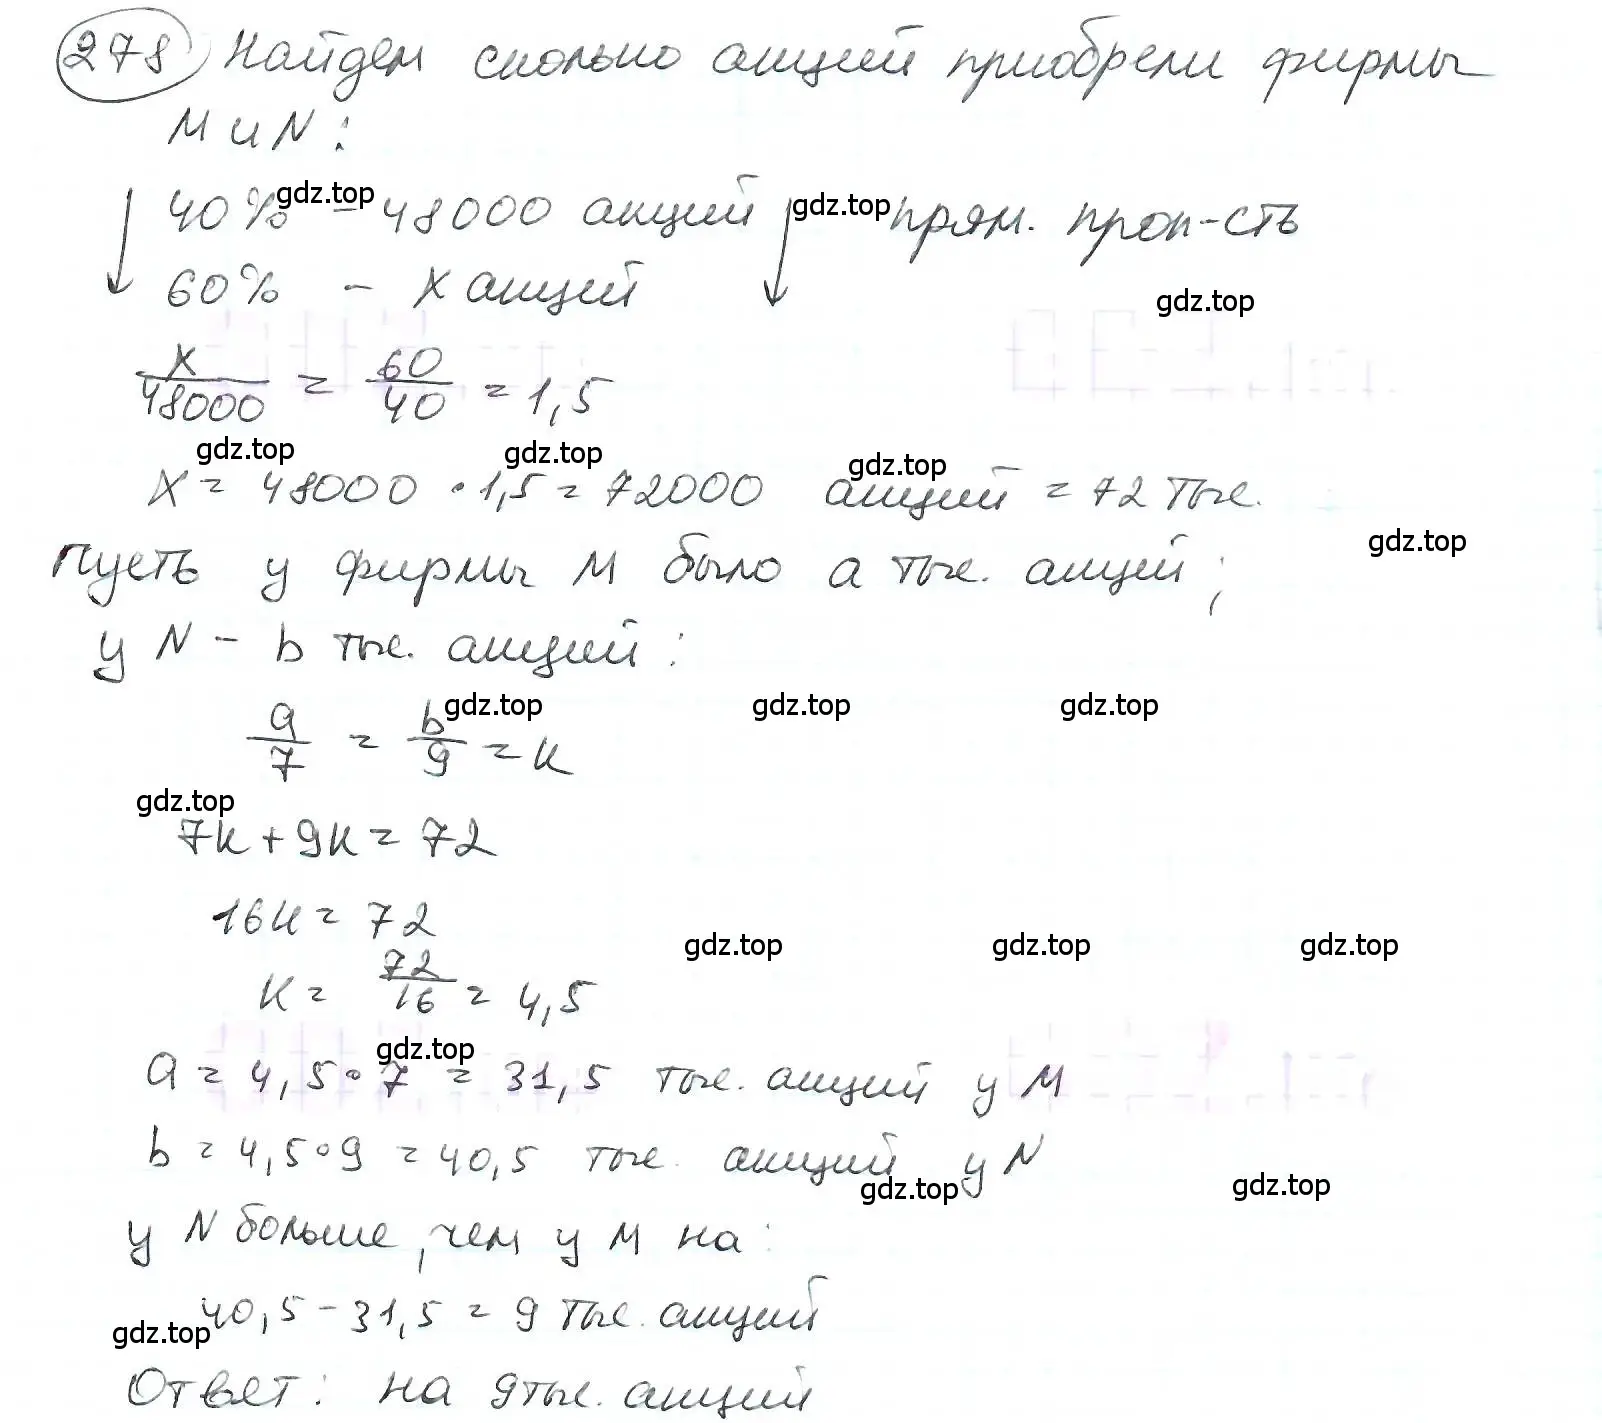 278 Найдем сколько акций приобрели фирмы
M и N:
40% gdz.top – 48000 акций gdz.top прям. проп-сть
60% – x акций
gdz.top
x/48000 = 60/40 = 1,5
gdz.top gdz.top gdz.top
x = 48000 · 1,5 = 72000 акций = 72 тыс.
gdz.top
Пусть у фирмы M было a тыс. акций;
у N – b тыс. акций:
gdz.top gdz.top gdz.top
a/7 = b/9 = k
gdz.top
7k + 9k = 72
16k = 72
gdz.top gdz.top gdz.top
k = 72/16 = 4,5
gdz.top
a = 4,5 · 7 = 31,5 тыс. акций у M
b = 4,5 · 9 = 40,5 тыс. акций у N
gdz.top gdz.top
у N больше, чем у M на:
40,5 – 31,5 = 9 тыс. акций
gdz.top
Ответ: на 9 тыс. акций